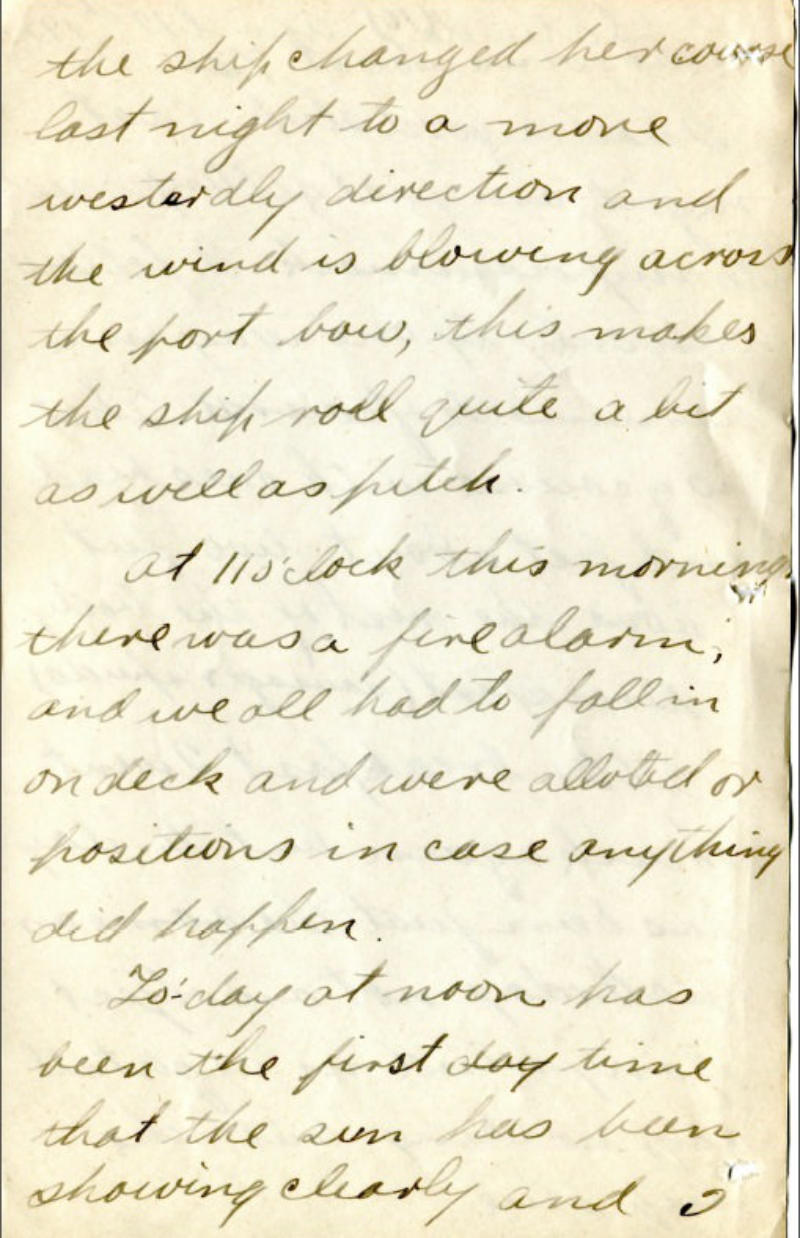 the ship changed her course
last night to a more
westerdly direction and
the wind is blowing across
the port bow, this makes
the ship roll quite a bit
as well as pitch.
at 11 o'clock this morning
there was a fire alarm,
and we all had to fall in
on deck and were alloted or
positions in case anything
did happen.
To-day at noon has
been the first day time
that the sun has been
showing clearly and